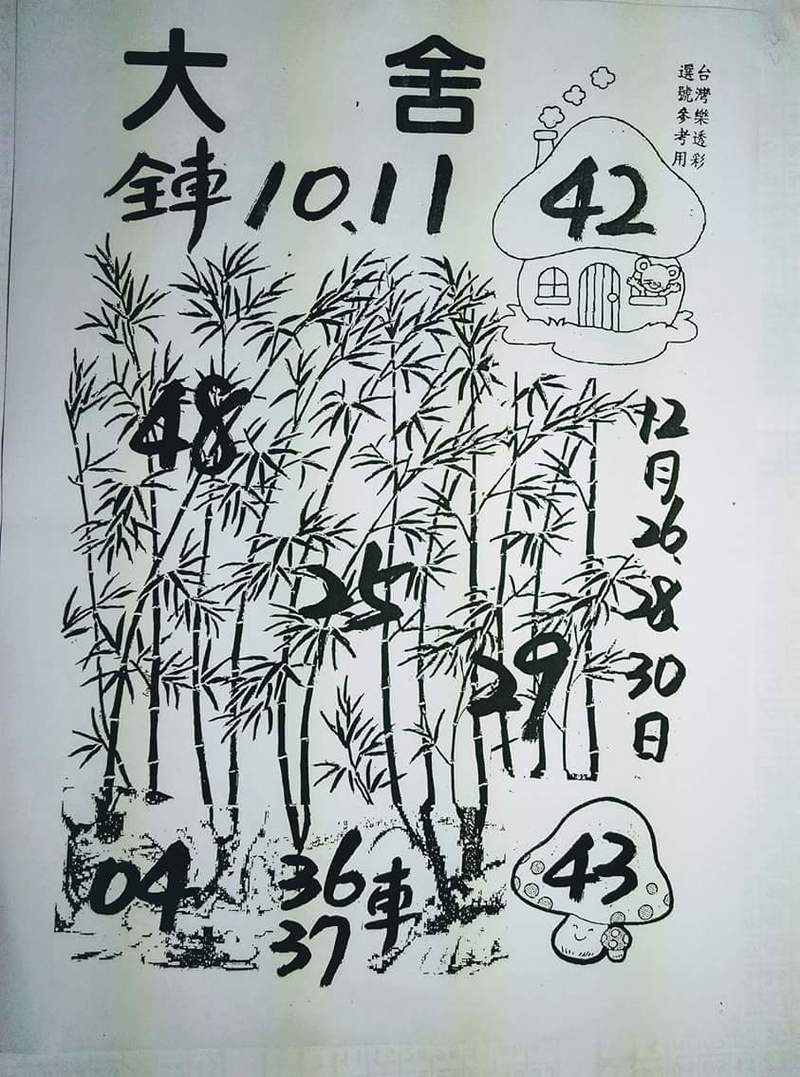 大舍
台灣樂透彩
選號參考用
全車 10、11
42
48
12月26、28、30日
25
29
04
36
37
車
43